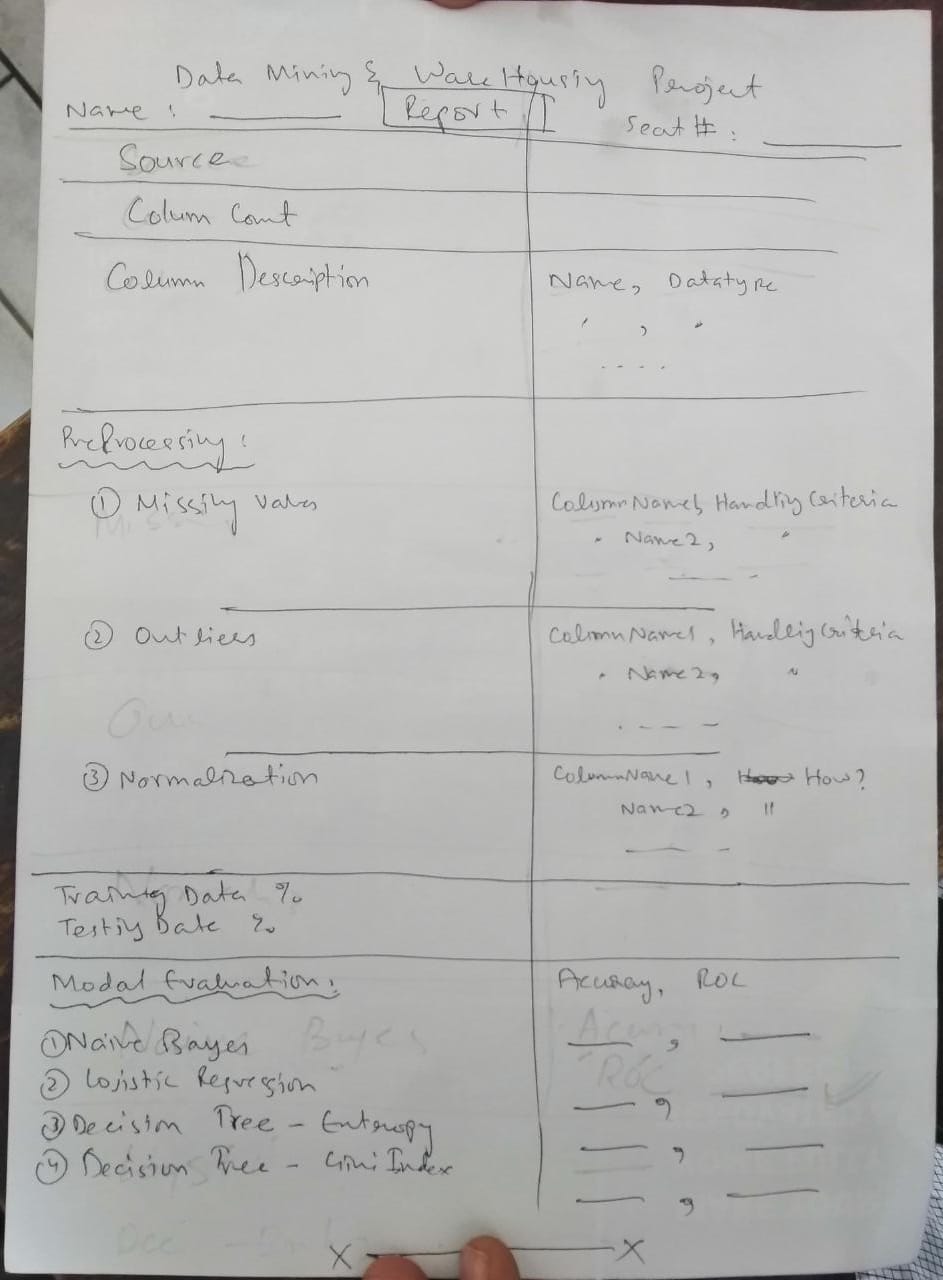 Data Mining & WareHousing Project
Name : ______ Report Seat # : ______
Source
Colum Count
Column Description Name, Datatype
" , "
. . . .
PreProcessing :
① Missing values ColumnName1, Handling Criteria
" Name2, "
② Outliers ColumnName1, Handling Criteria
" Name2, "
. — — —
③ Normalization ColumnName1, How?
Name2, "
Training Data %
Testing Data %
Modal Evaluation : Accuracy, ROC
① Naive Bayes ____ , ____
② Lojistic Regression ____ , ____
③ Decision Tree – Entropy ____ , ____
④ Decision Tree – Gini Index ____ , ____
X ———— X